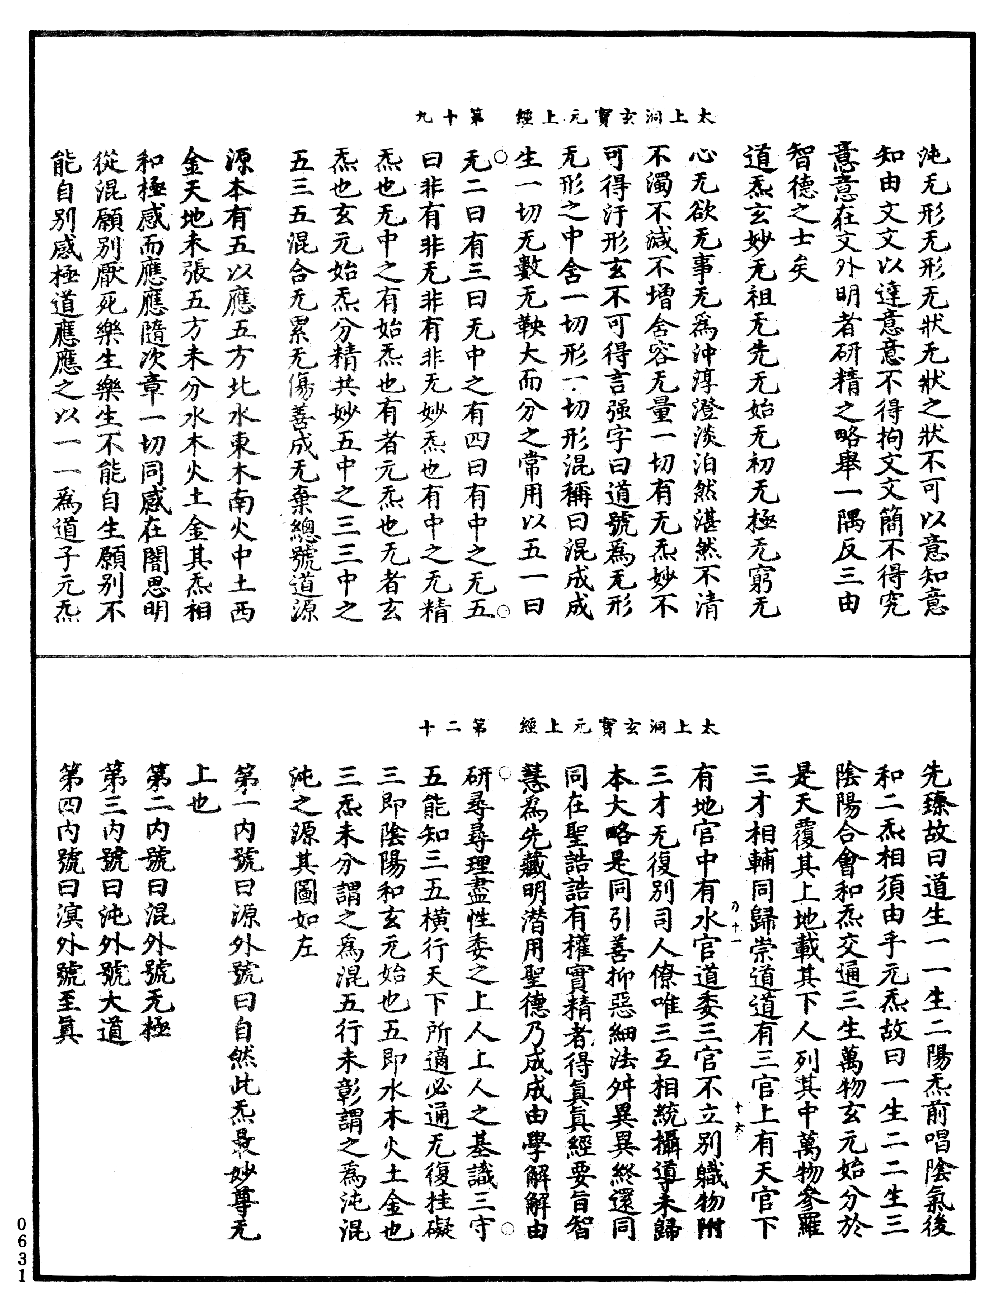 太上洞玄寳元上經　第十九
沌无形无形无狀无狀之狀不可以意知意
知由文文以達意意不得拘文文簡不得究
意意在文外明者研精之略舉一隅反三由
智德之士矣
道炁玄妙无祖无先无始无初无極无窮无
心无欲无事无爲沖淳澄淡泊然湛然不清
不濁不減不增舍容无量一切有无炁妙不
可得汙形玄不可得言强字曰道號爲无形
无形之中舍一切形一切形混稱曰混成成
生一切无數无鞅大而分之常用以五一曰
无二曰有三曰无中之有四曰有中之无五
曰非有非无非有非无妙炁也有中之无精
炁也无中之有始炁也有者元炁也无者玄
炁也玄元始炁分精共妙五中之三三中之
五三五混合无累无傷善成无棄總號道源
源本有五以應五方北水東木南火中土西
金天地未張五方未分水木火土金其炁相
和極感而應應隨次章一切同感在闇思明
從混願別厭死樂生樂生不能自生願別不
能自別感極道應應之以一一爲道子元炁
太上洞玄寳元上經　第二十
先臻故曰道生一一生二陽炁前唱陰氣後
和二炁相須由乎元炁故曰一生二二生三
陰陽合會和炁交通三生萬物玄元始分於
是天覆其上地載其下人列其中萬物參羅
三才相輔同歸崇道道有三官上有天官下
有地官中有水官道委三官不立別軄物附
三才无復別司人僚唯三互相統攝導未歸
本大略是同引善抑惡細法舛異異終還同
同在聖誥誥有權實精者得眞眞經要旨智
慧爲先藏明潛用聖德乃成成由學解解由
研尋尋理盡性委之上人上人之基識三守
五能知三五橫行天下所適必通无復挂礙
三即陰陽和玄元始也五即水木火土金也
三炁未分謂之爲混五行未彰謂之爲沌混
沌之源其圖如左
第一內號曰源外號曰自然此炁最妙尊无
上也
第二內號曰混外號无極
第三內號曰沌外號大道
第四內號曰溟外號至眞
0631